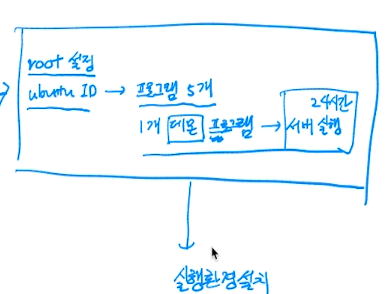 root 설정
ubuntu ID → 프로그램 5개
1개 데몬 프로그램 → 24시간 서버 실행
실행환경설치